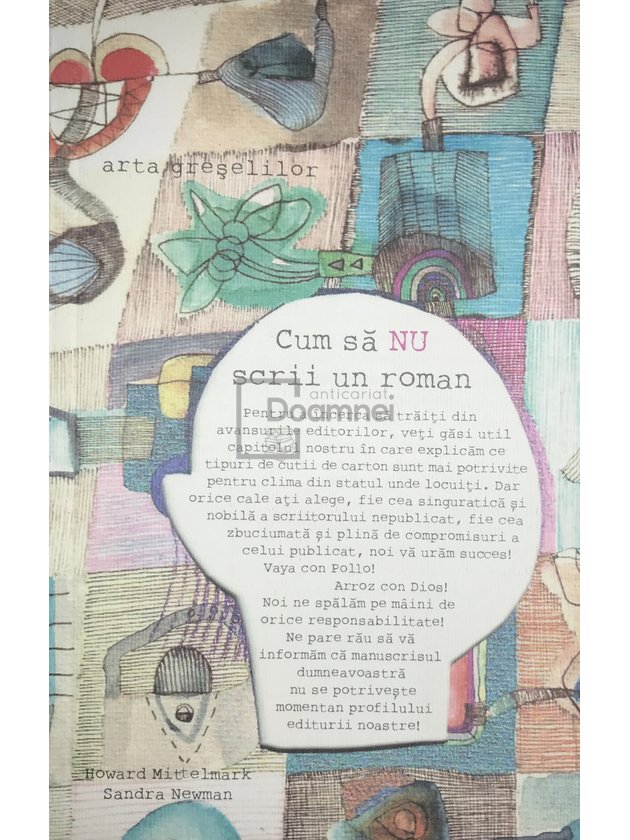 arta greşelilor
Cum să NU
scrii un roman
anticariat
Doamnei
Pentru a încerca să trăiţi din
avansurile editorilor, veţi găsi util
capitolul nostru în care explicăm ce
tipuri de cutii de carton sunt mai potrivite
pentru clima din statul unde locuiţi. Dar
orice cale aţi alege, fie cea singuratică şi
nobilă a scriitorului nepublicat, fie cea
zbuciumată şi plină de compromisuri a
celui publicat, noi vă urăm succes!
Vaya con Pollo!
Arroz con Dios!
Noi ne spălăm pe mâini de
orice responsabilitate!
Ne pare rău să vă
informăm că manuscrisul
dumneavoastră
nu se potriveşte
momentan profilului
editurii noastre!
Howard Mittelmark
Sandra Newman